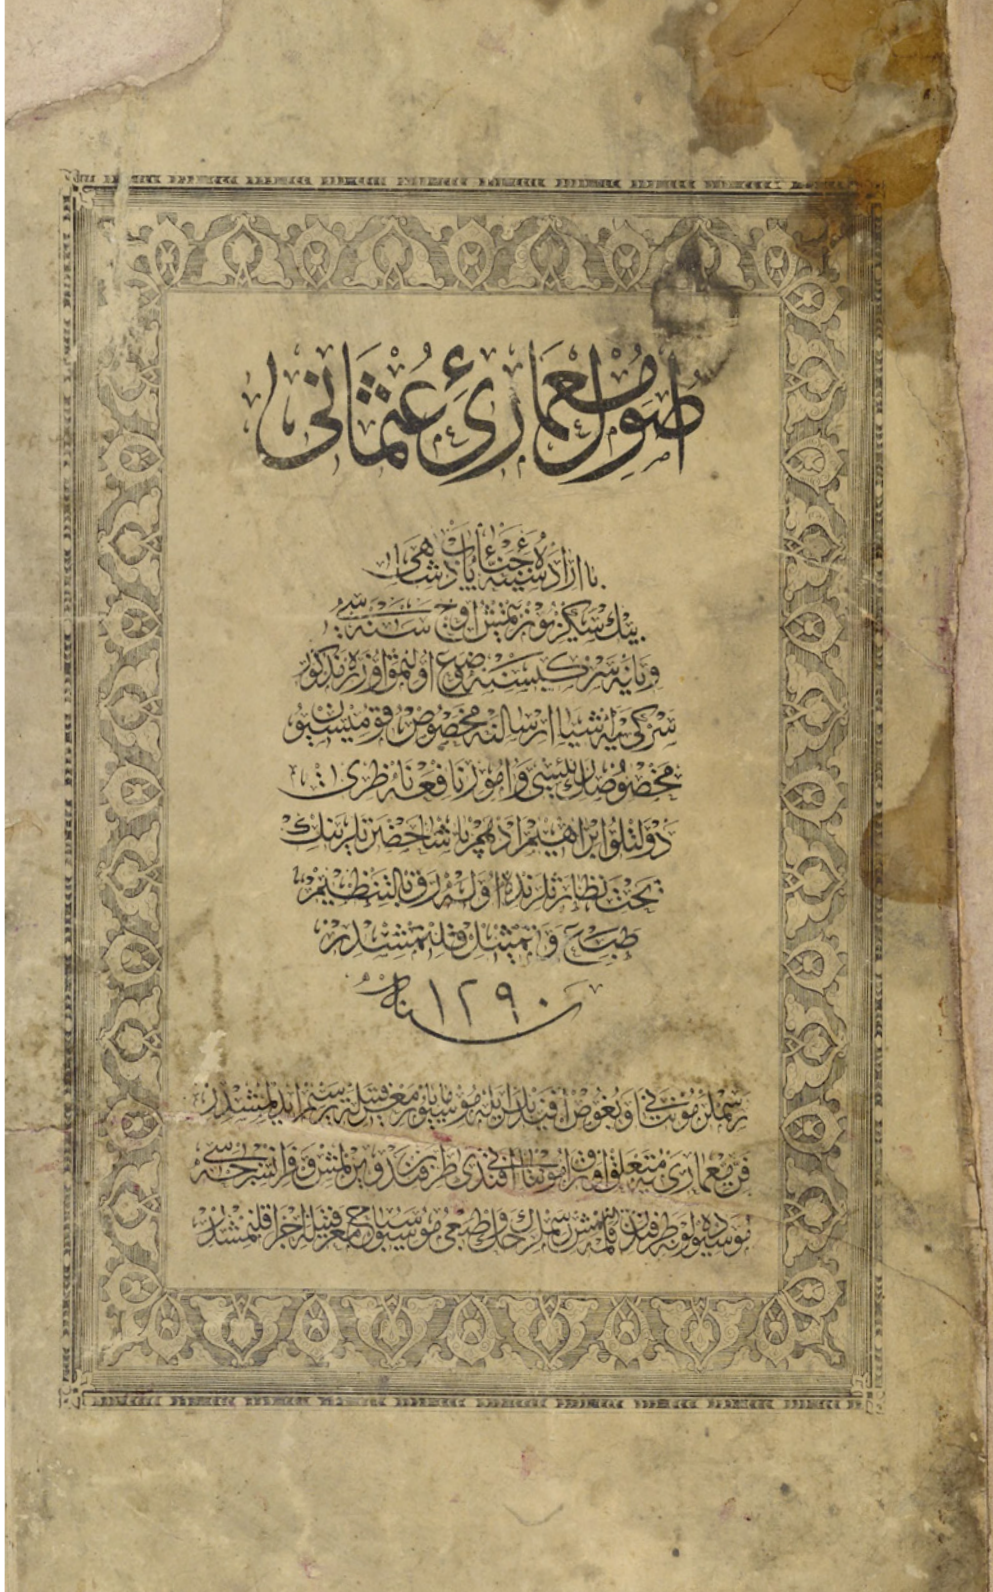 اصول معمارئ عثمانی
با ارادهٔ سنیهٔ جناب پادشاهی
بیك سكز یوز یتمش اوچ سنه سی
ویانه سركیسنه وضع اولنمق اوزره مذكور
سركی یه اشیا ارسالنه مخصوص قومیسیون
مخصوص رئیسی و امور نافعه ناظری
دولتلو ابراهیم ادهم پاشا حضرتلرینك
تحت نظارتلرنده اوله رق بالتنظیم
طبع و تمثیل قلنمشدر
سنه ١٢٩٠
رسملر مونتانی و بوغوص افندیلر ایله موسیو معرفتیله ترسیم ایدلمشدر
فن معماری یه متعلق افندی طرفندن ویرلمش و فرانسزجه سی
موسیو دولونه طرفندن قلمه النمش رسملرك حك و طبعی موسیو معرفتیله اجرا قلنمشدر